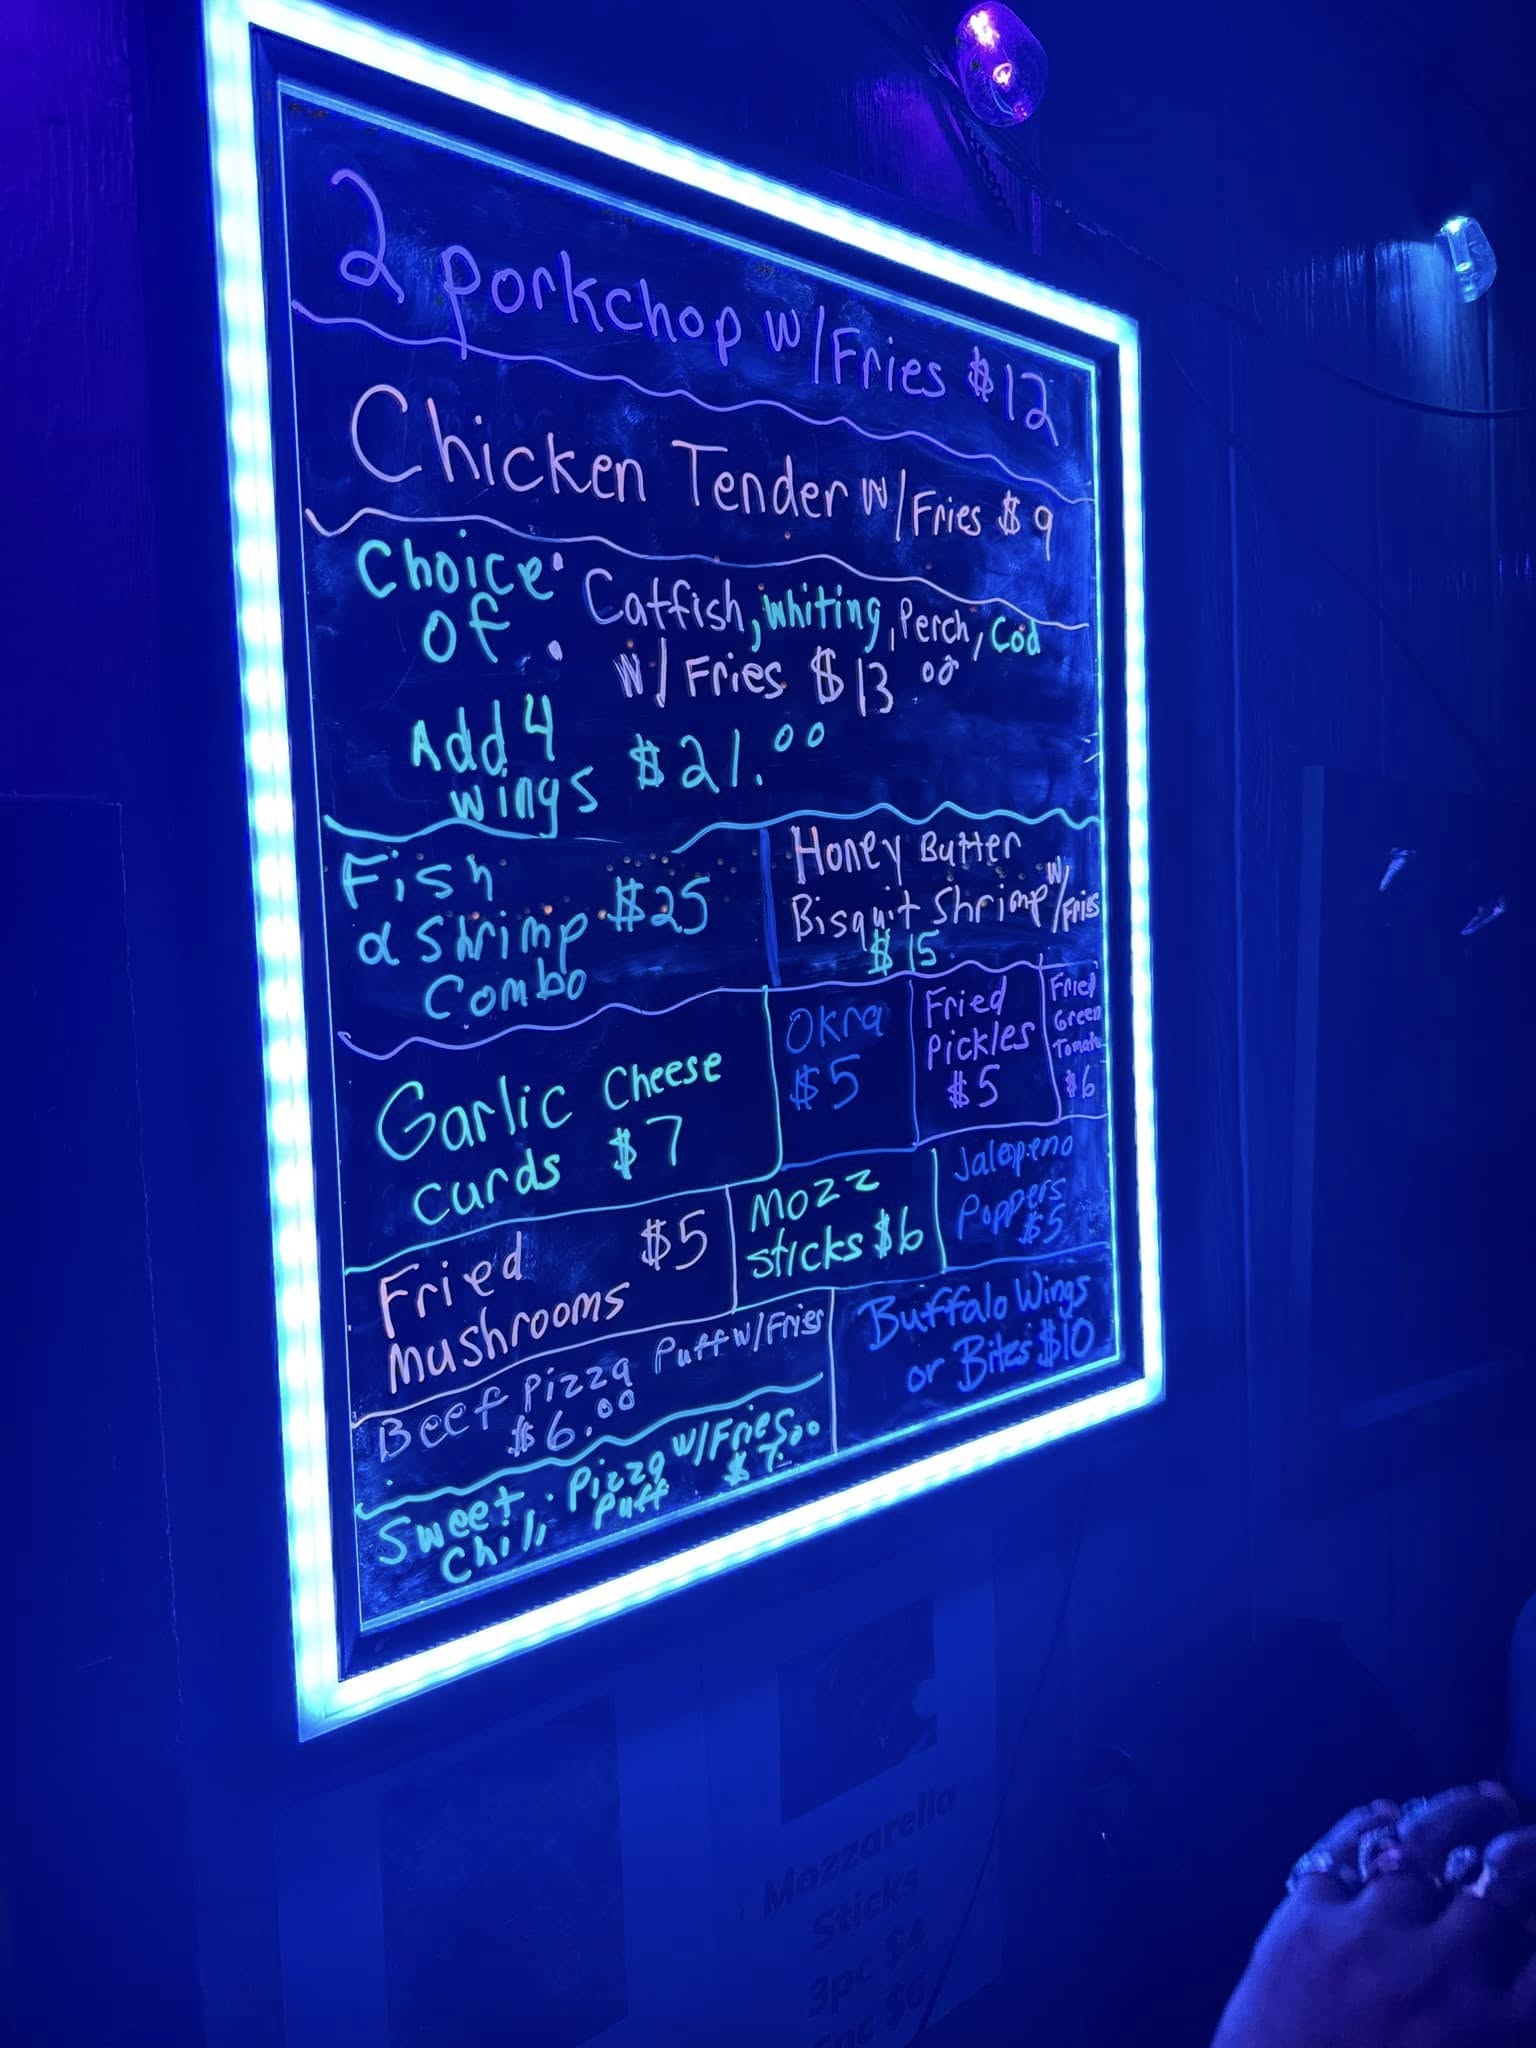 2 Porkchop w/Fries $12
Chicken Tender w/Fries $9
Choice Of : Catfish, Whiting, Perch, Cod
w/Fries $13 00
Add 4 wings $21.00
Fish
& Shrimp $25
Combo
Honey Butter
Bisquit Shrimp w/Fries
$15
Garlic Cheese
Curds $7
Okra
$5
Fried
Pickles
$5
Fried
Green
Tomato
$6
Fried $5
Mushrooms
Mozz
Sticks $6
Jalepeno
Poppers
$5
Beef Pizza Puff w/Fries
$6.00
Buffalo Wings
or Bites $10
Sweet Chili Pizza Puff w/Fries $7.00
Mozzarella
Sticks
3pc $4
6pc $6